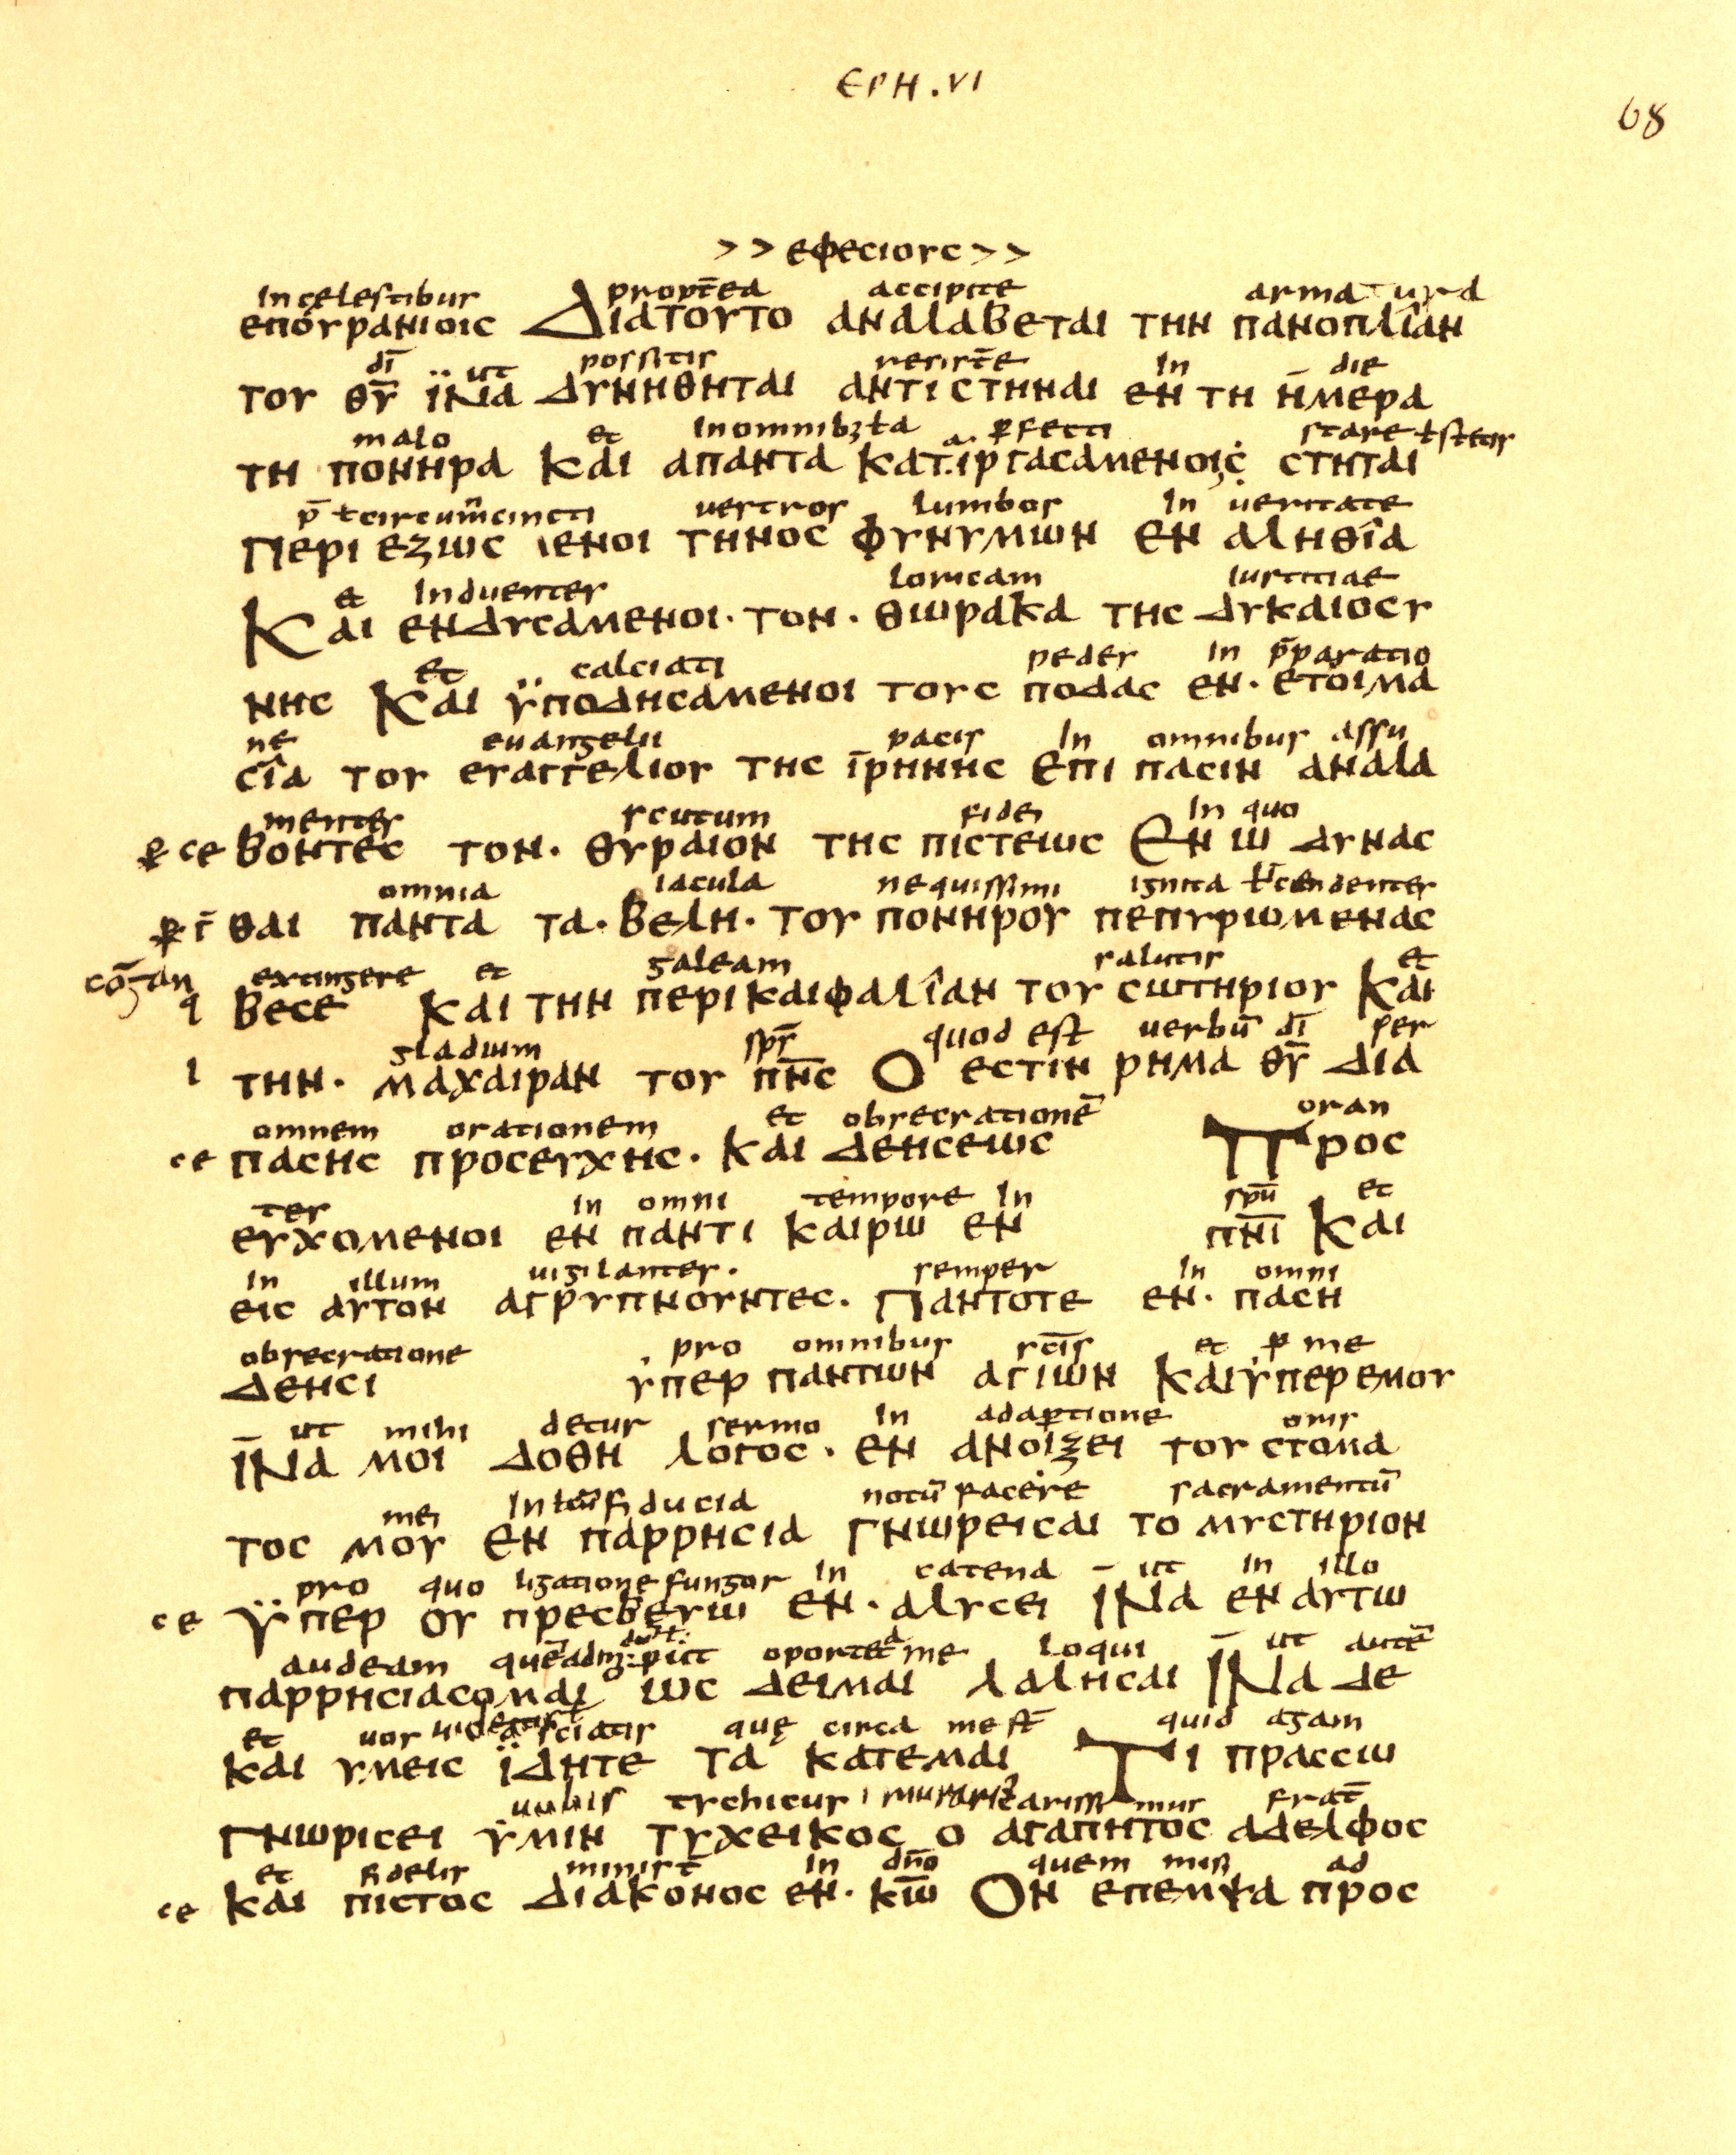 ΕΡΗ.VI
68
>> εφεϲιουϲ >>
In celestibus propt̄ea accipite armatura
επόυρανιοιϲ Διατουτο αναλαβεται την πανοπλῖαν
dī ut possitis resist̄e In die
του θ̅υ̅ ϊνα δυνηθηται αντιϲτηναι εν τη ημερα
malo et In omnibꝫ ta ꝑfecti stare ł stetis
τη πονηρα και απαντα κατιργαϲαμενοιϲ ϲτηται
p̄ ł circum̄cincti vestros lumbos In veritate
Περι εζωϲ μενοι τηνοϲ φυνυμων εν αληθῖα
et Induentes loricam Iustitiae
Και ενδυϲαμενοι · τον · θωρακα τηϲ δυκαιοϲυ
et calciati pedes In p̄paratio
νηϲ Και ϋποδηϲαμενοι τουϲ ποδαϲ εν · ετοιμα
ne euangelii pacis In omnibus assu
ϲῖα του ευαγγελιου τηϲ ϊρηνηϲ επι παϲιν αναλα
mentes scutum fidei In quo
ϲε βοντεϲ τον · θυραιον τηϲ πιϲτεωϲ Εν ω δυναϲ
omnia iacula nequissimi ignita
θαι παντα τα · βελη · του πονηρου πεπυρωμεναϲ
extingere et galeam salutis et
βεϲε και την περικαιφαλῖαν του ϲωτηριου και
gladium sp̄s quod est verbū dī per
ι την · μαχαιραν του π̅ν̅ϲ Ο εϲτιν ρημα θ̅υ̅ δια
omnem orationem et obsecrationē oran
ϲε παϲηϲ προϲευχηϲ · και δεηϲεωϲ Προϲ
tes in omni tempore In spū et
ευχομενοι εν παντι καιρω εν π̅ν̅ι̅ και
In illum uigilantes · semper In omni
ειϲ αυτον αγρυπνουντεϲ · Παντοτε εν · παϲη
obsecratione pro omnibus sc̄is et ꝑ me
δεηϲι υπερ παντων αγιων και υπερ εμου
ut mihi detur sermo in adaꝑtione oris
ϊνα μοι δοθη λογοϲ · εν ανοιξει του ϲτομα
mei In fiducia notū facere sacramentū
τοϲ μου εν παρρηϲια γνωρειϲαι το μυϲτηριον
pro quo ligatione fungor in catena ut in illo
ϲε ϋπερ ου πρεϲβευω εν · αλυϲει ϊνα εν αυτω
audeam oportea me loqui ut autē
παρρηϲιαϲομαι ωϲ δειμαι λαληϲαι ϊνα δε
et vos sciatis quę circa me st̄ quid agam
και υμειϲ ϊδητε τα κατεμαι Τι πραϲϲω
uobis tychicus carissimus frat̄
γνωριϲει υμιν τυχεικοϲ ο αγαπητοϲ αδελφοϲ
et fidelis minist̄ in dn̄o quem misi ad
ϲε και πιϲτοϲ διακονοϲ εν · κ̅ω̅ Ον επεμψα προϲ